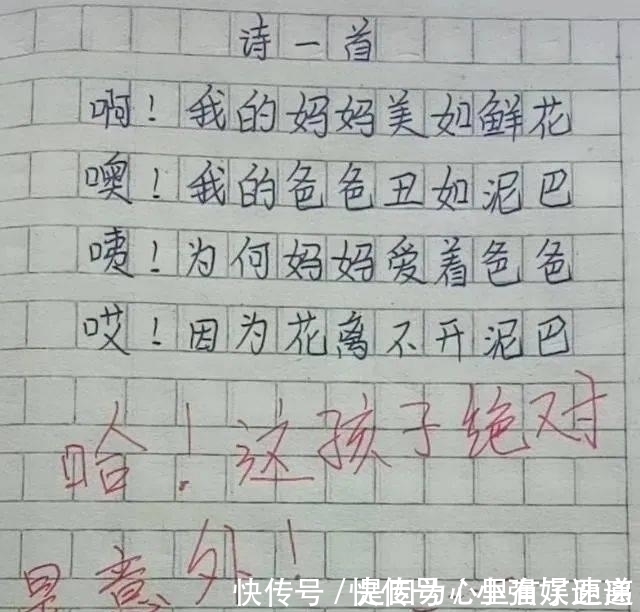 诗一首
啊！我的妈妈美如鲜花
噢！我的爸爸丑如泥巴
咦！为何妈妈爱着爸爸
哎！因为花离不开泥巴
哈！这孩子绝对
是意外！
快传号 /